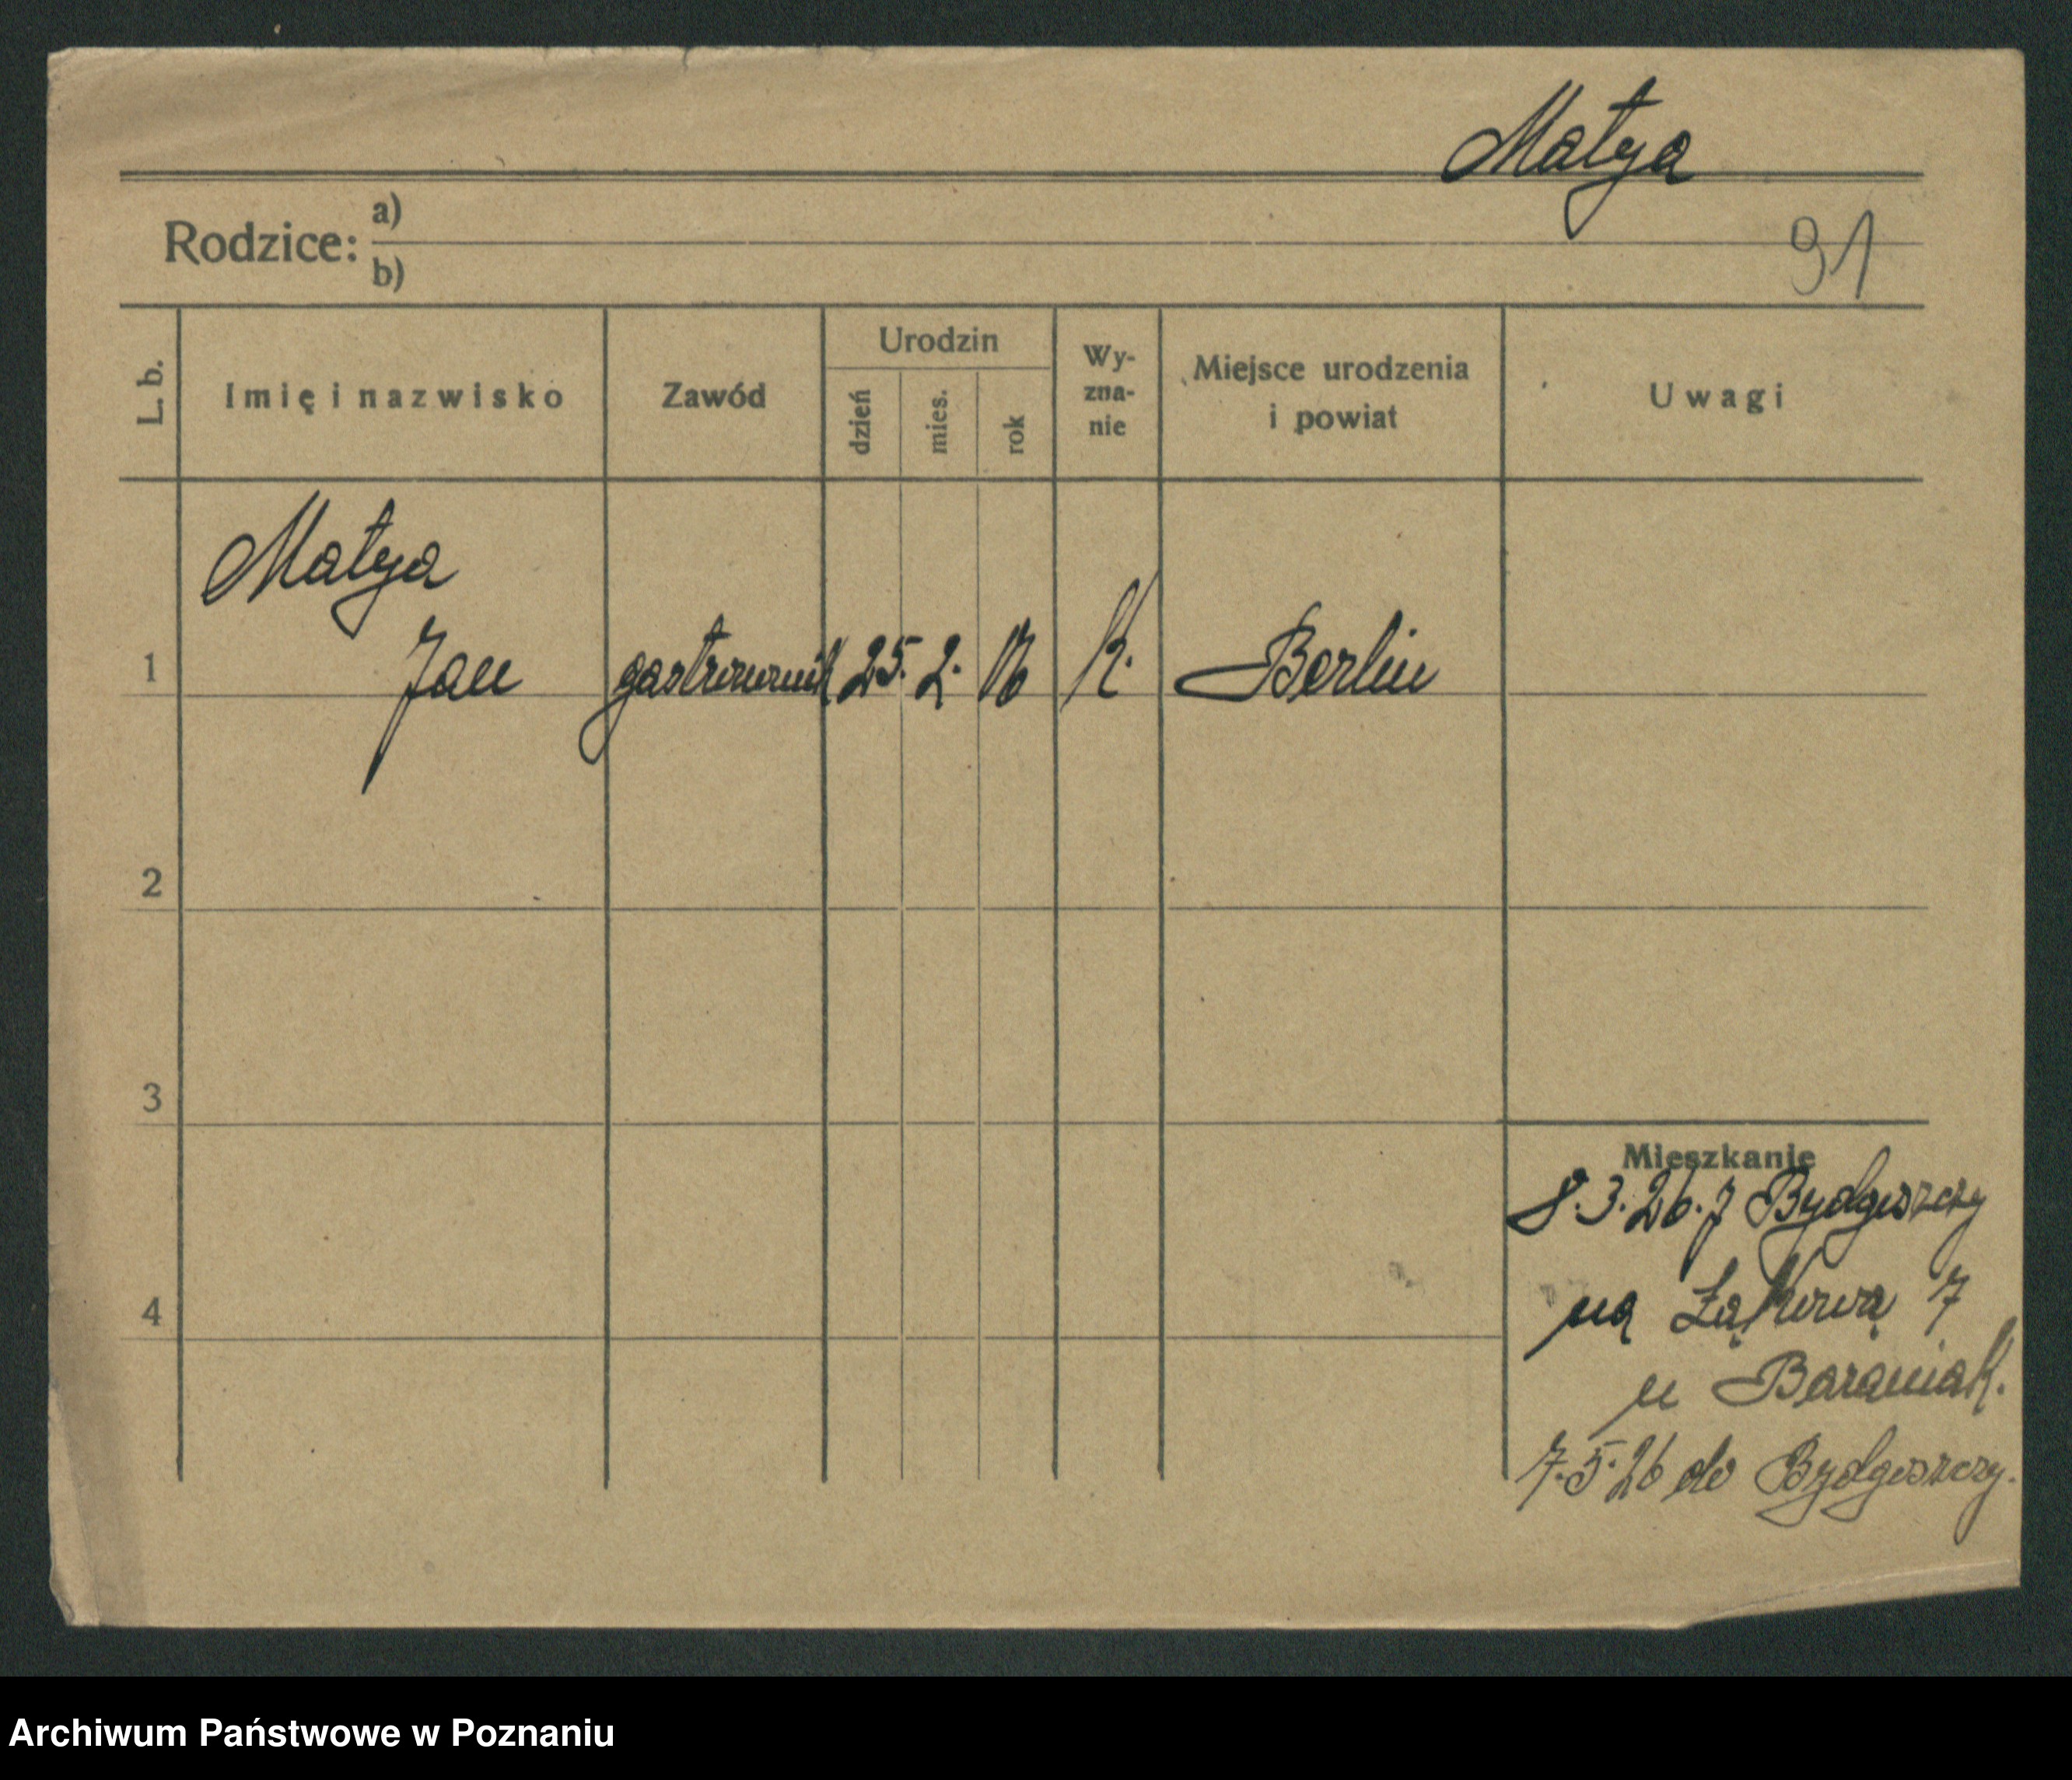 Matya
Rodzice: a)
b)
91
L. b. Imię i nazwisko Zawód Urodzin dzień mies. rok Wy-zna-nie Miejsce urodzenia i powiat Uwagi
Matya
1 Jan gastronomik 25. 2. 06 K. Berlin
2
3
Mieszkanie
8.3.26. z Bydgoszczy
4 na Łąkową 7
u Baraniak.
7.5.26 do Bydgoszczy.
Archiwum Państwowe w Poznaniu